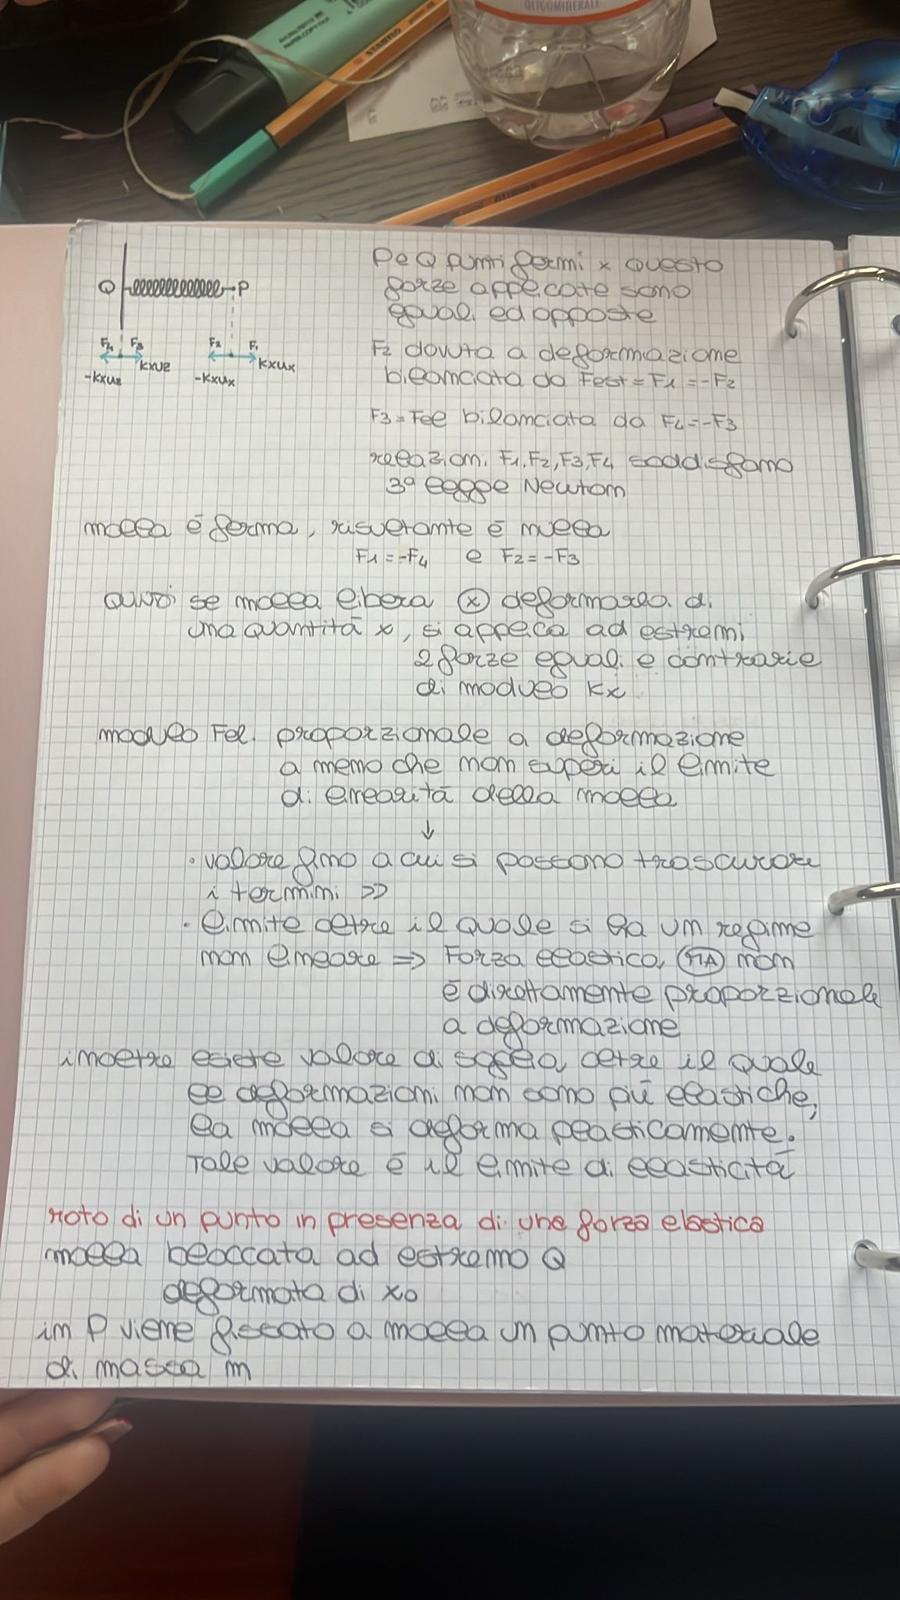 OLIGOMINERALE
STABILO
Q P
P e Q punti fermi x questo
forze applicate sono
eguali ed opposte
F4 F3 F2 F1
-kxux kxux -kxux kxux
F2 dovuta a deformazione
bilanciata da Fest = F1 = -F2
F3 = Fel bilanciata da F4 = -F3
relazioni F1, F2, F3, F4 soddisfano
3ª legge Newton
molla è ferma, risultante è nulla
F1 = -F4 e F2 = -F3
quindi se molla libera x deformarla di
una quantità x, si applica ad estremi
2 forze eguali e contrarie
di modulo kx
modulo Fel. proporzionale a deformazione
a meno che non superi il limite
di linearità della molla
↓
• valore fino a cui si possono trascurare
i termini >>
• limite oltre il quale si ha un regime
non lineare => Forza elastica MA non
è direttamente proporzionale
a deformazione
inoltre esiste valore di soglia oltre il quale
le deformazioni non sono più elastiche,
la molla si deforma plasticamente.
Tale valore è il limite di elasticità
moto di un punto in presenza di una forza elastica
molla bloccata ad estremo Q
deformata di x0
in P viene fissato a molla un punto materiale
di massa m